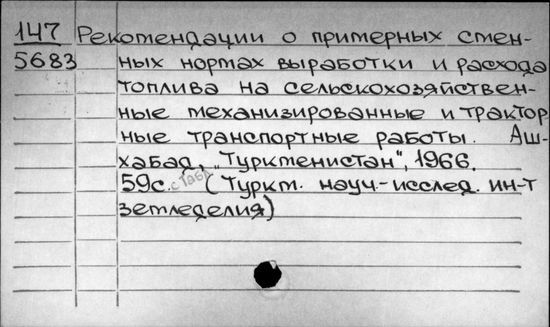 147 Рекомендации о примерных смен-
5683 ных нормах выработки и расхода
топлива на сельскохозяйствен-
ные механизированные и трактор
ные транспортные работы. Аш-
хабад, „Туркменистан", 1966.
59с. с табл. (Туркм. науч.-исслед. ин-т
земледелия)